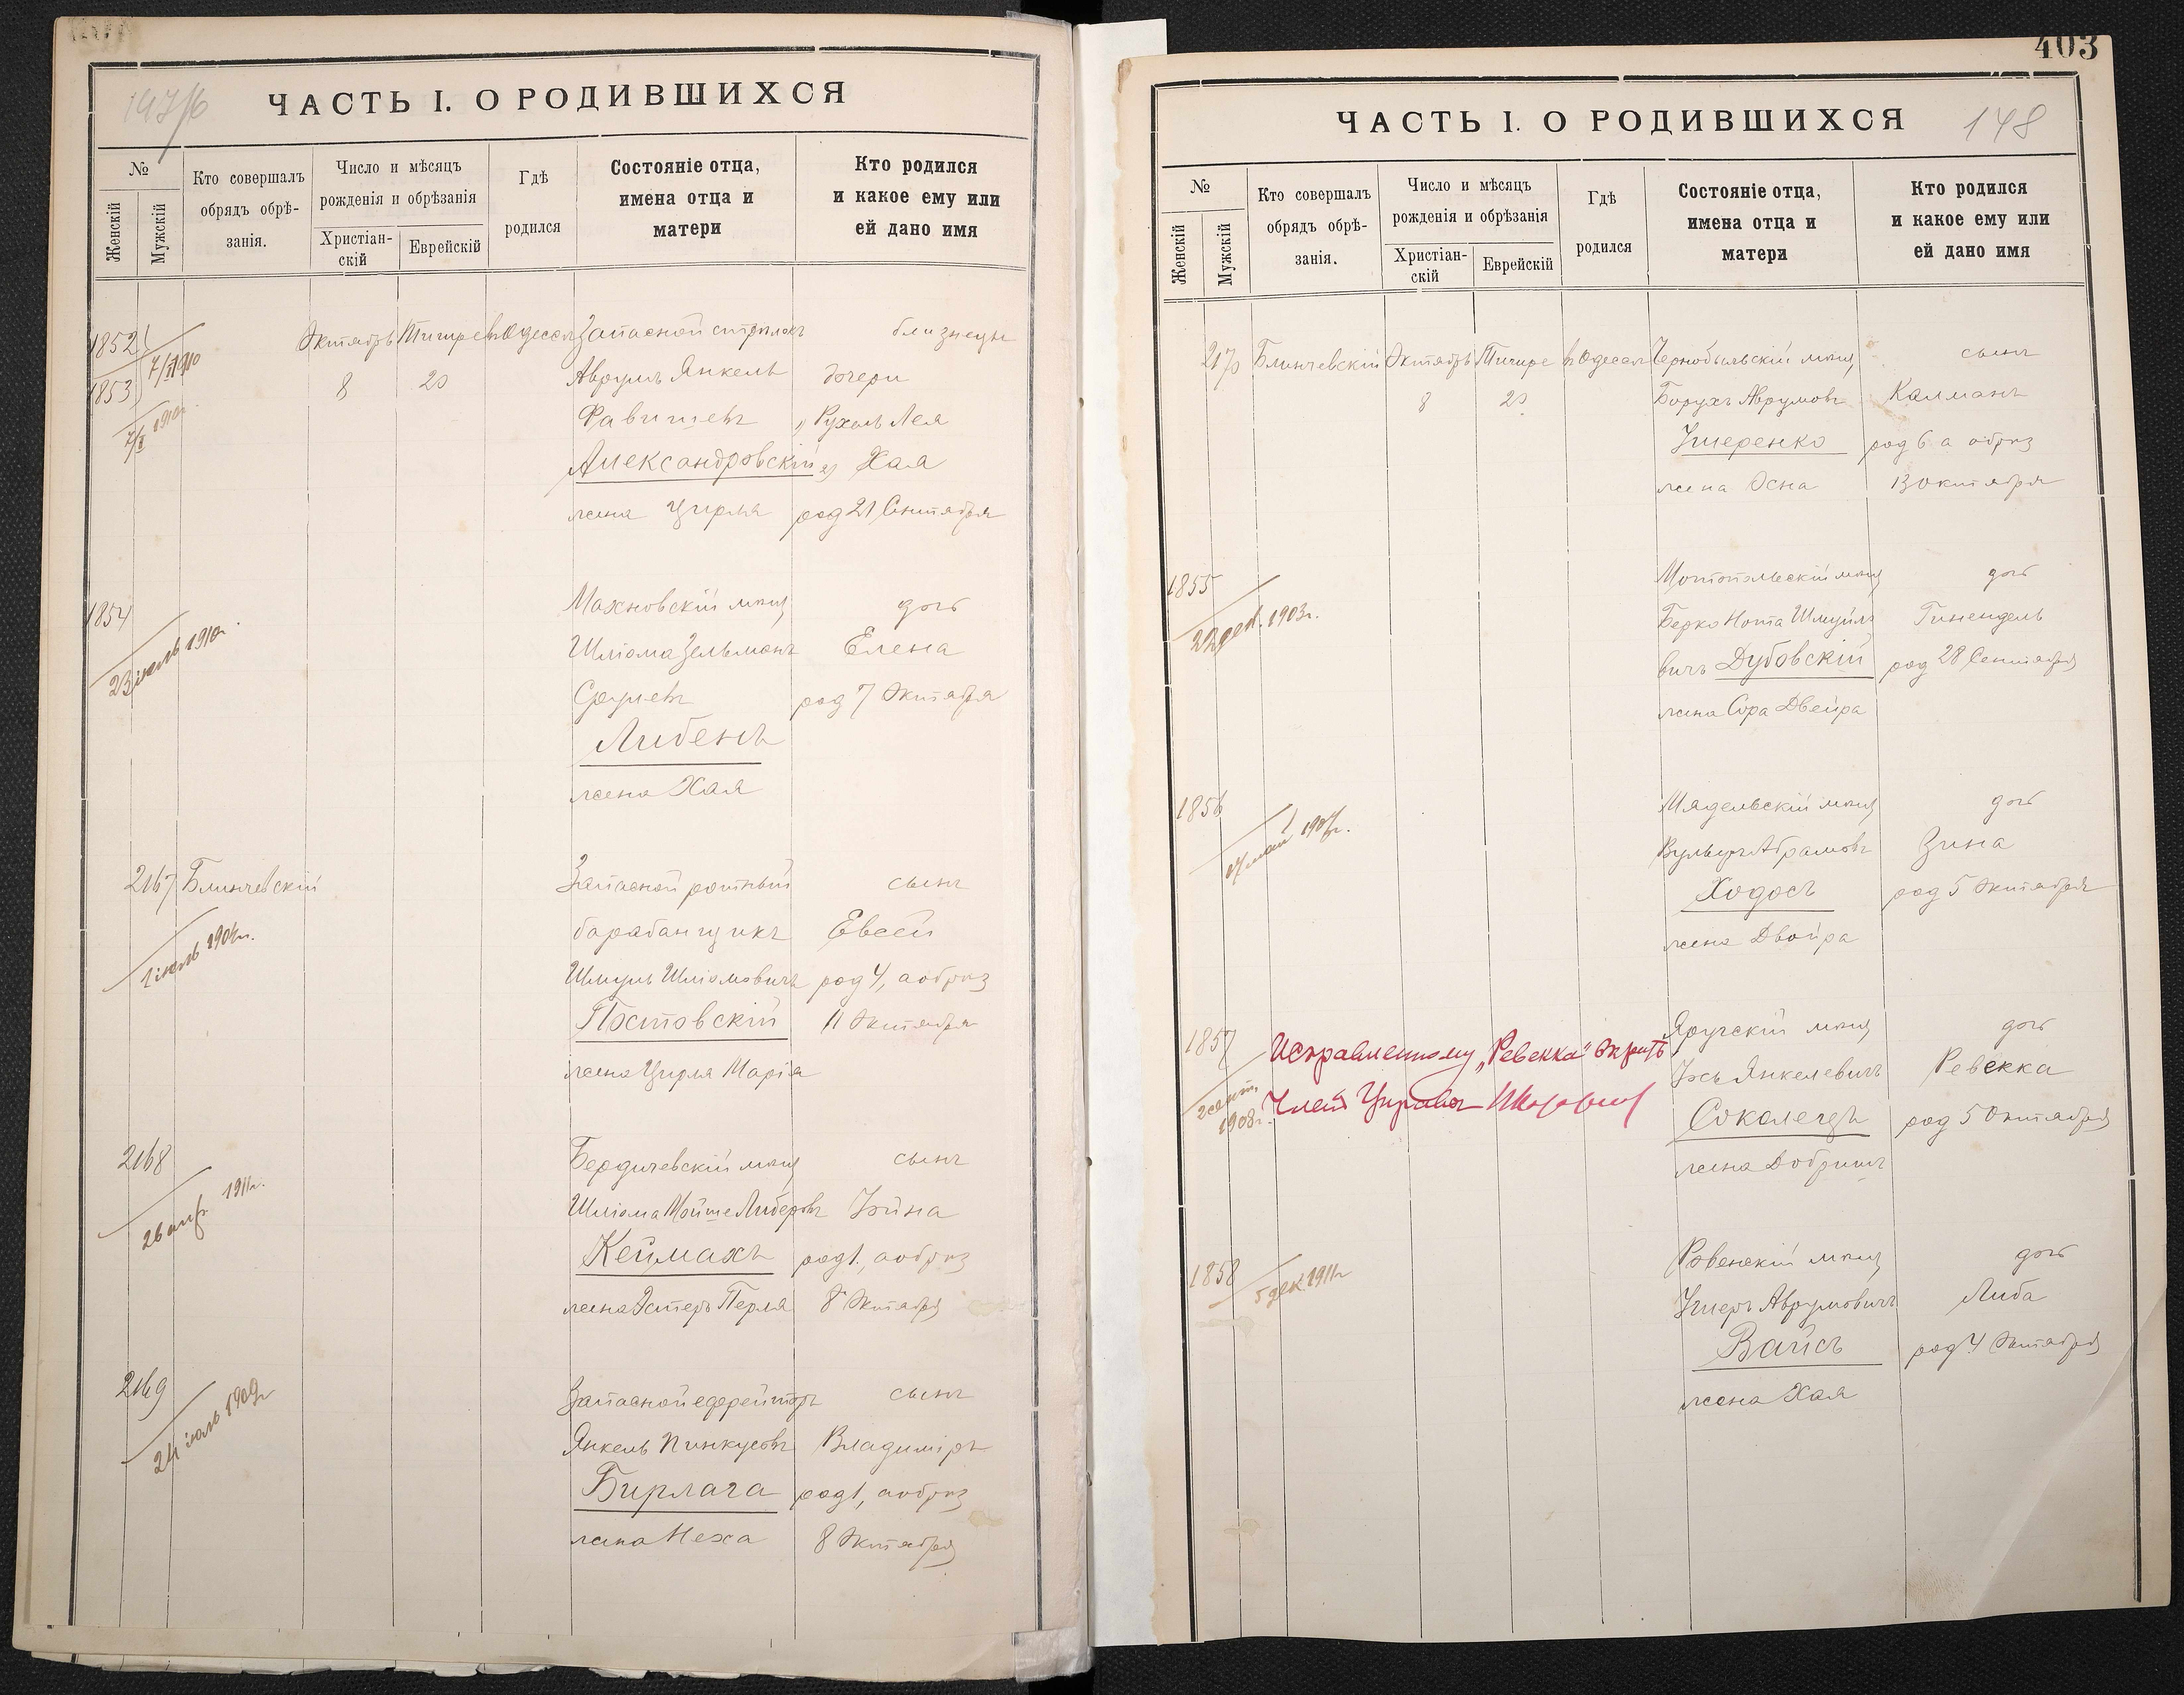 ЧАСТЬ I. О РОДИВШИХСЯ
№
Женскій
Мужскій
Кто совершалъ
обрядъ обрѣ-
занія.
Число и мѣсяцъ
рожденія и обрѣзанія
Христіан-
скій
Еврейскій
Гдѣ
родился
Состояніе отца,
имена отца и
матери
Кто родился
и какое ему или
ей дано имя
1852
1853
Октябрь Тишре въ Одессѣ Запасной стрѣлокъ близнецы
8 20 Аврумъ Янкель дочери
Фавишевъ „ Рухль Лея
Александровскій „ Хая
жена Цирля род 21 Сентября
1854
23 іюль 1910г.
Махновскій мѣщ дочь
Шліома Зельманъ Елена
род 7 Октября
Либенъ
жена Хая
2167 Блинчевскій
Запасной ротный сынъ
барабанщикъ Евсей
Шмуль Шліомовичъ род 4, а обрѣз
Постовскій 11 Октября
жена Цирля Марія
2168
26 апр. 1911г.
Бердичевскій мѣщ сынъ
Шліома Мойше Либеровъ Іойна
Кеймахъ род 1, а обрѣз
жена Эстеръ Перля 8 Октября
2169
24 іюль 1909г
Запасной ефрейторъ сынъ
Янкель Пинкусовъ Владиміръ
Бирлага род 1, а обрѣз
жена Неха 8 Октября
403
ЧАСТЬ I. О РОДИВШИХСЯ
148
№
Женскій
Мужскій
Кто совершалъ
обрядъ обрѣ-
занія.
Число и мѣсяцъ
рожденія и обрѣзанія
Христіан-
скій
Еврейскій
Гдѣ
родился
Состояніе отца,
имена отца и
матери
Кто родился
и какое ему или
ей дано имя
2170 Блинчевскій Октябрь Тишре въ Одессѣ Чернобыльскій мѣщ сынъ
8 20 Борухъ Аврумовъ Калманъ
Ушеренко род 6 а обрѣз
жена Осна 13 Октября
1855
22 дек. 1903г.
Мотольскій мѣщ дочь
Берко Нота Шмуйло Гинендель
вичъ Дубовскій род 28 Сентября
жена Сора Двейра
1856
Мядельскій мѣщ дочь
Вульфъ Абрамовъ Зина
Ходосъ род 5 Октября
жена Двойра
1857
2 сент.
1908г.
Исправленному „Ревекка" вѣрить
Членъ Управы
Яругскій мѣщ дочь
Іосъ Янкелевичъ Ревекка
Соколецъ род 5 Октября
жена Добришъ
1858
5 дек 1911г
Ровенскій мѣщ дочь
Ушеръ Аврумовичъ Либа
Вайсъ род 4 Октября
жена Хая